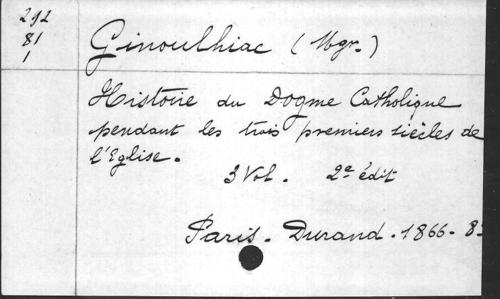 292
81
1
Ginoulhiac (Mgr.)
Histoire du Dogme Catholique
pendant les trois premiers siècles de
l'Eglise.
3 Vol. 2e édit
Paris. Durand. 1866-8